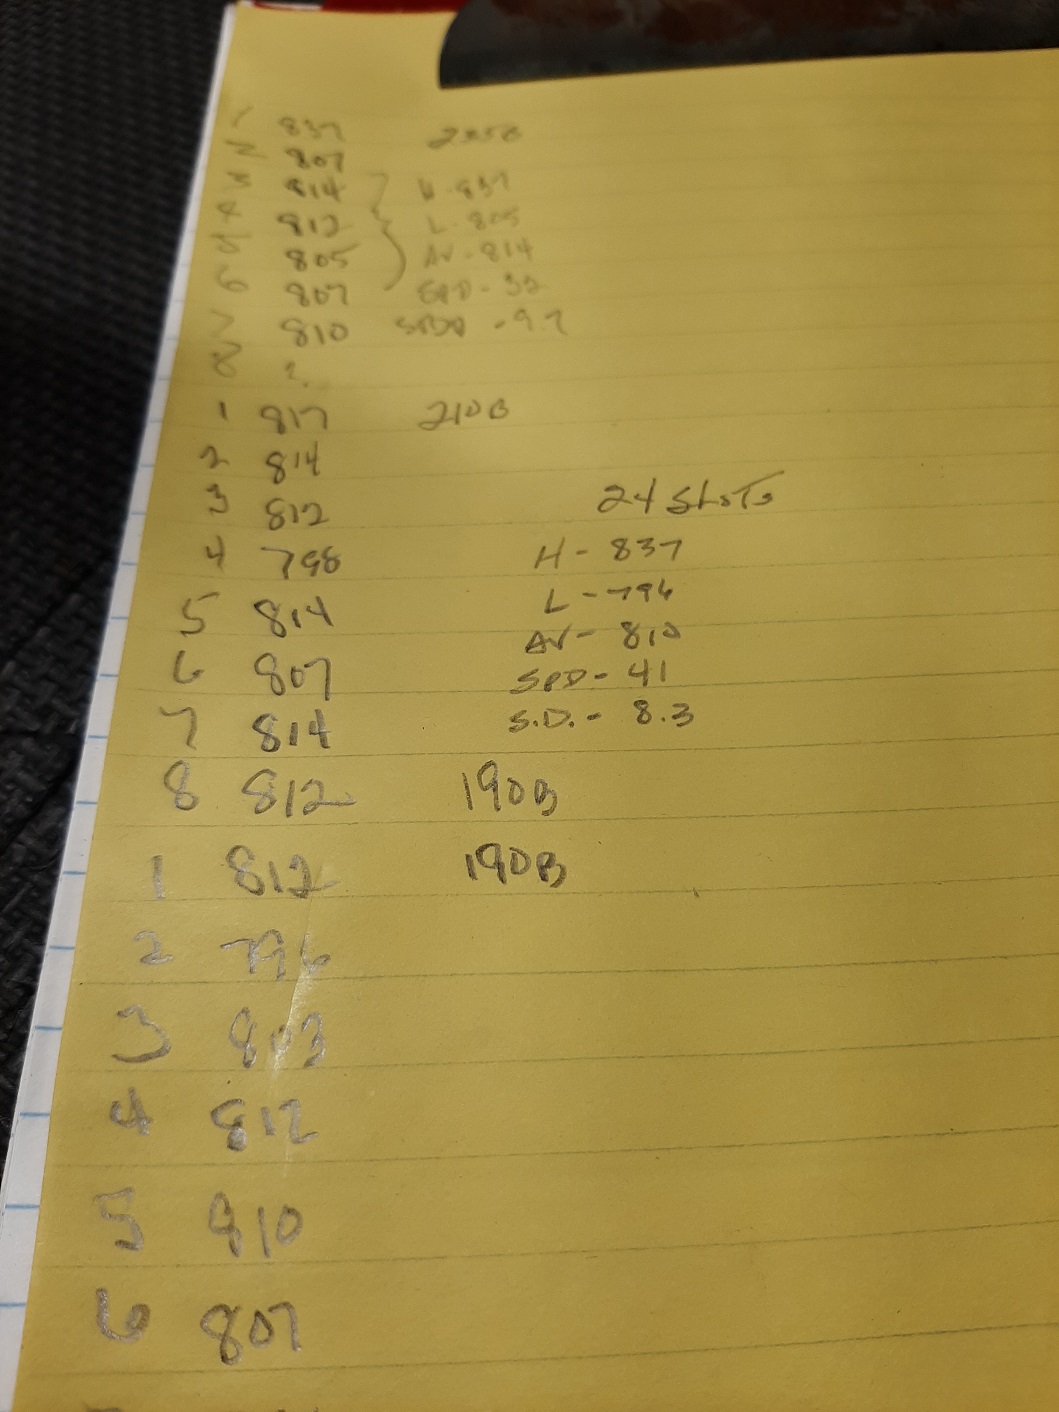 1 837
2 807
3 814 H-837
4 812 L-805
5 805 AV-814
6 807 SPD-32
7 810 STDD -9.7
8 ?
1 817 210B
2 814
3 812 24 Shots
4 798 H-837
5 814 L-796
6 807 AV-810
SPD-41
7 814 S.D.- 8.3
8 812 190B
1 812 190B
2 796
3 803
4 812
5 810
6 807